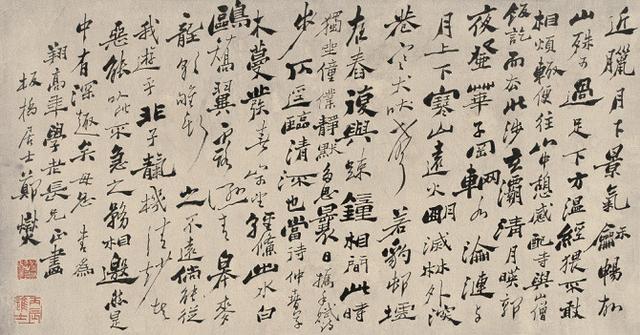 近臘月下景氣龢暢故
山殊可過足下方溫經猥不敢
相煩輒便往山中憩感配寺與山僧
飯訖而去北涉玄灞清月暎郭
夜登華子岡輞水淪漣與
月上下寒山遠火明滅林外深
巷寒犬吠聲若豹邨墟
夜舂復與疎鐘相間此時
獨坐僮僕靜默多思曩日攜手賦詩
步仄逕臨清流也當待仲春草
木蔓發春山可望輕鯈出水白
鷗矯翼露濕青皋麥
隴朝雊斯之不遠倘能從
我遊乎非子靝機清妙者
惡能以此不急之務相邀然是
中有深趣矣毋忽書為
翔高年學老長兄正畫
板橋居士鄭燮
丙辰進士